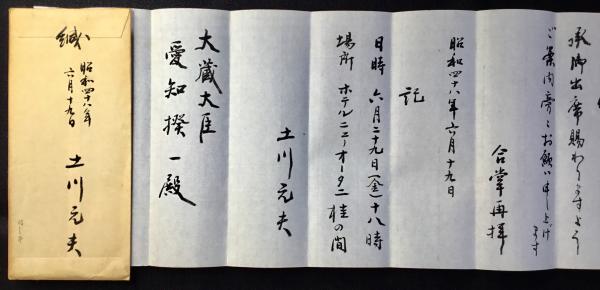 承御出席賜わりますよう
ご案内旁々お願い申し上げ
ます
合掌再拝
昭和四十八年六月十九日
記
日時 六月二十九日(金)十八時
場所 ホテルニューオータニ 桂の間
土川元夫
大蔵大臣
愛知揆一殿
緘
昭和四十八年
六月十九日
土川元夫